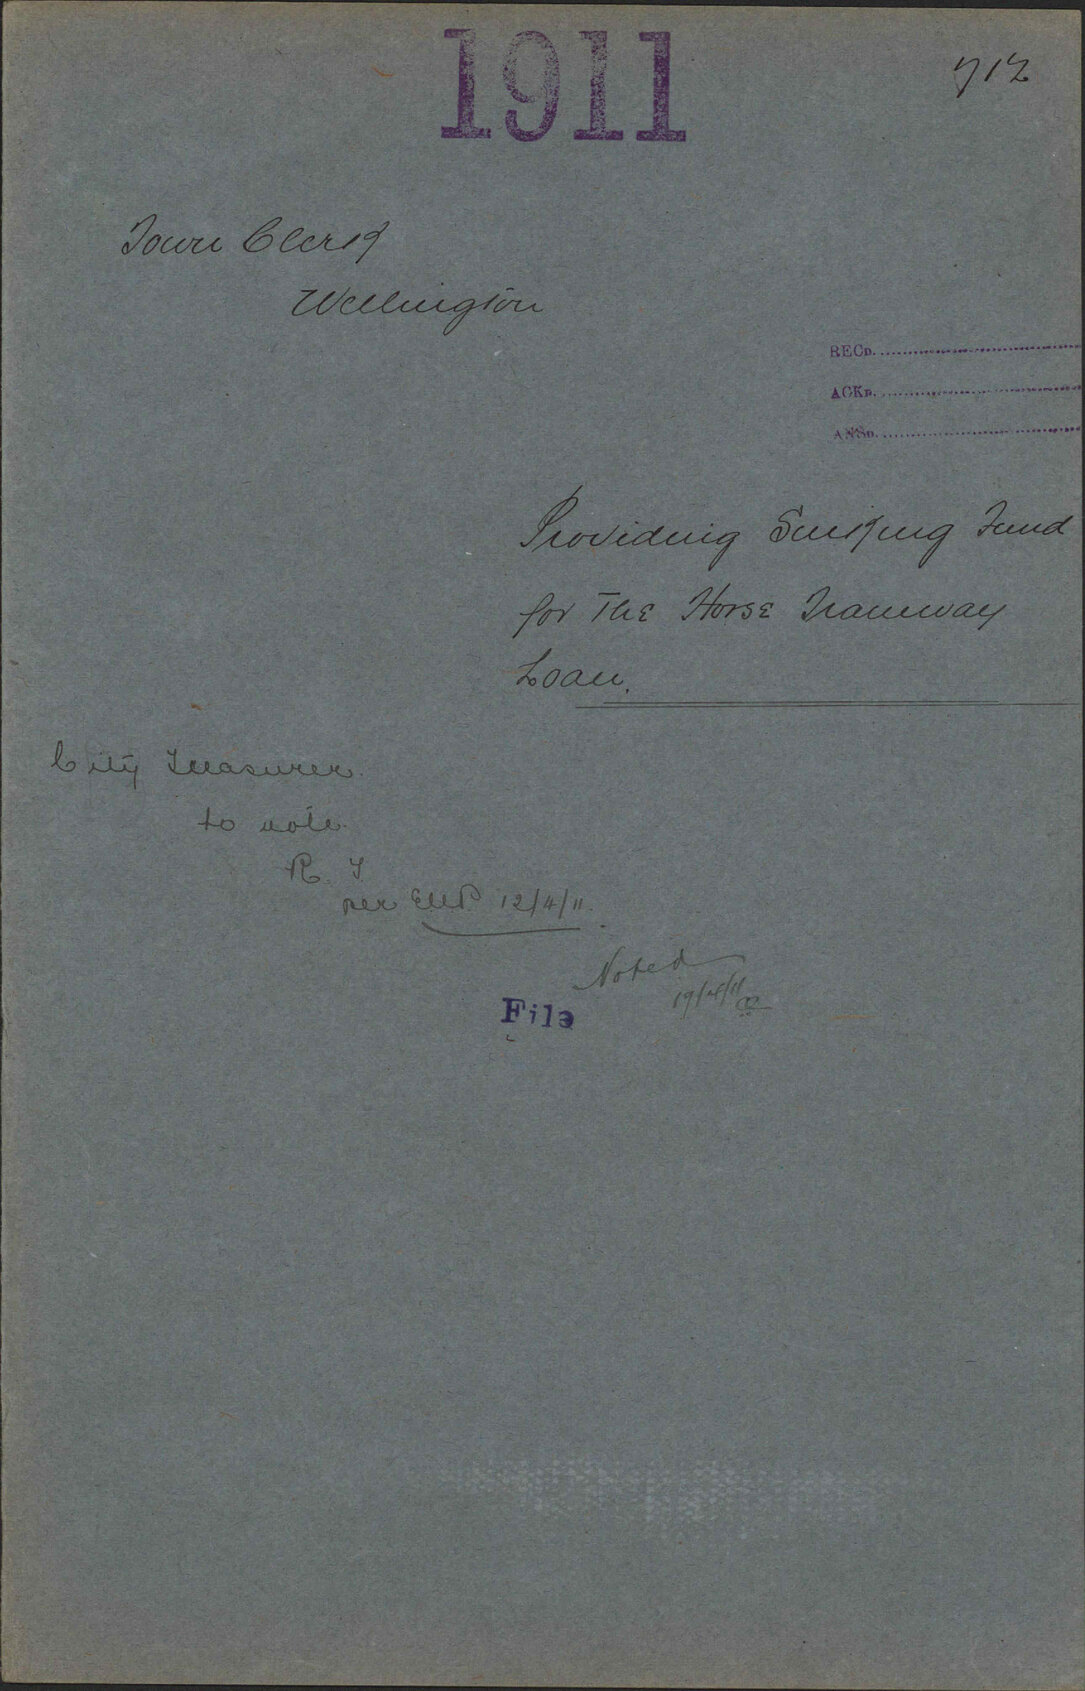 1911
712
Town Clerk
Wellington
RECD.
ACKD.
ANSD.
Providing Sinking Fund
for The Horse Tramway
Loan.
City Treasurer
to note
R. T
per EMP 12/4/11.
Noted
19/4/11
File